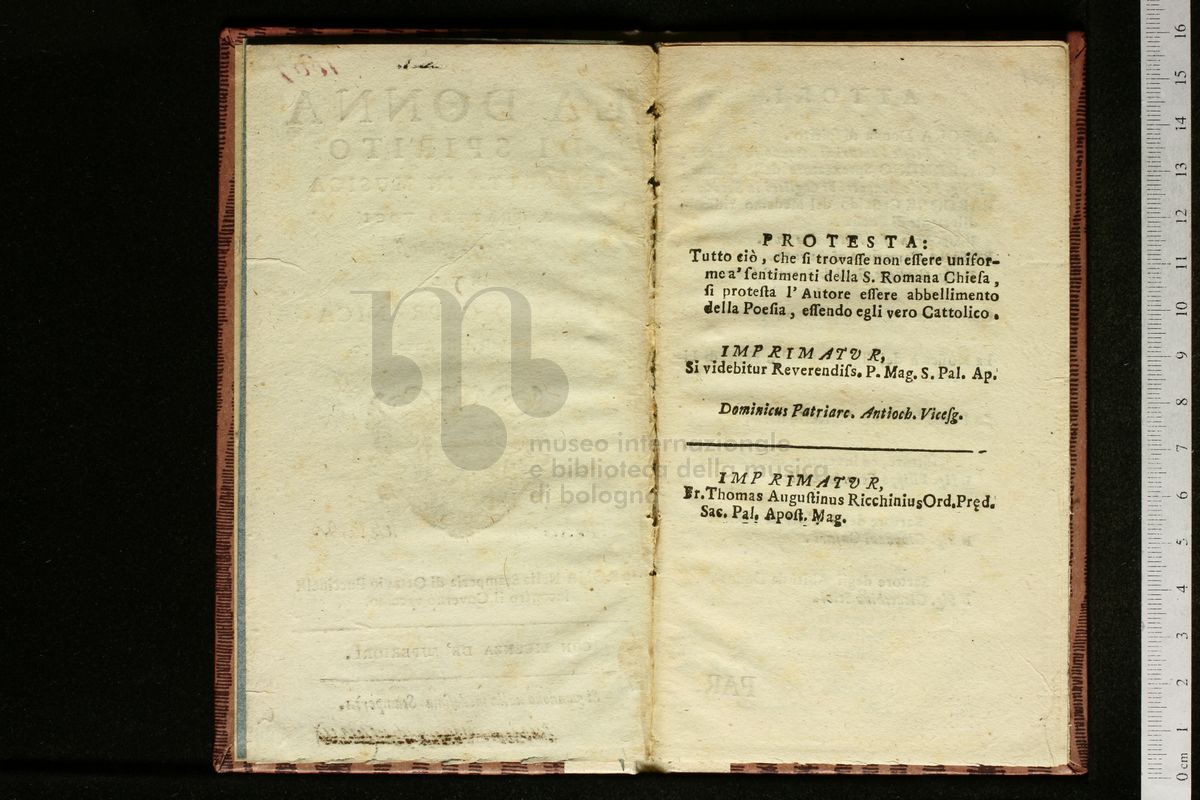 PROTESTA:
Tutto ciò, che si trovasse non essere unifor-
me a' sentimenti della S. Romana Chiesa,
si protesta l' Autore essere abbellimento
della Poesia, essendo egli vero Cattolico.
IMPRIMATVR,
Si videbitur Reverendiss. P. Mag. S. Pal. Ap.
Dominicus Patriarc. Antioch. Vicesg.
IMPRIMATVR,
Fr. Thomas Augustinus Ricchinius Ord. Pręd.
Sac. Pal. Apost. Mag.
museo internazionale
e biblioteca della musica
di bologna
0 cm 1 2 3 4 5 6 7 8 9 10 11 12 13 14 15 16